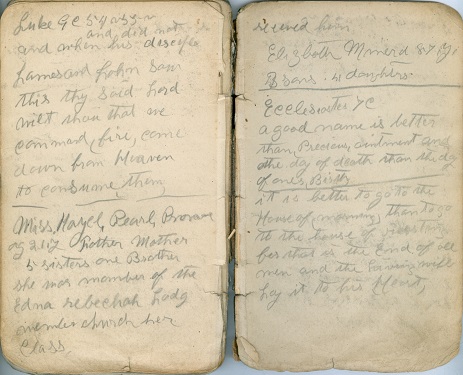 Luke 9C 54 & 55 v
and did not
and when his disciples
James and John saw
this thy said Lord
wilt thou that we
command, fire, come
down from Heaven
to consume, them,
Miss, Hazel, Pearl,
age 21 Mother
5 sisters one Brother
she was member of the
Edna rebeckah Lodg
member church her
Class,
received him
Elizbeth 87
sons : 4 daughters
Ecclesiastes 7C
a good name is better
than, Precious, ointment and
the day of death than the day
of ones, Birth
it is better to go to the
House of, morning, than to go
to the house of feasting
for that is the End of all
men and the Living will
lay it to his Heart,